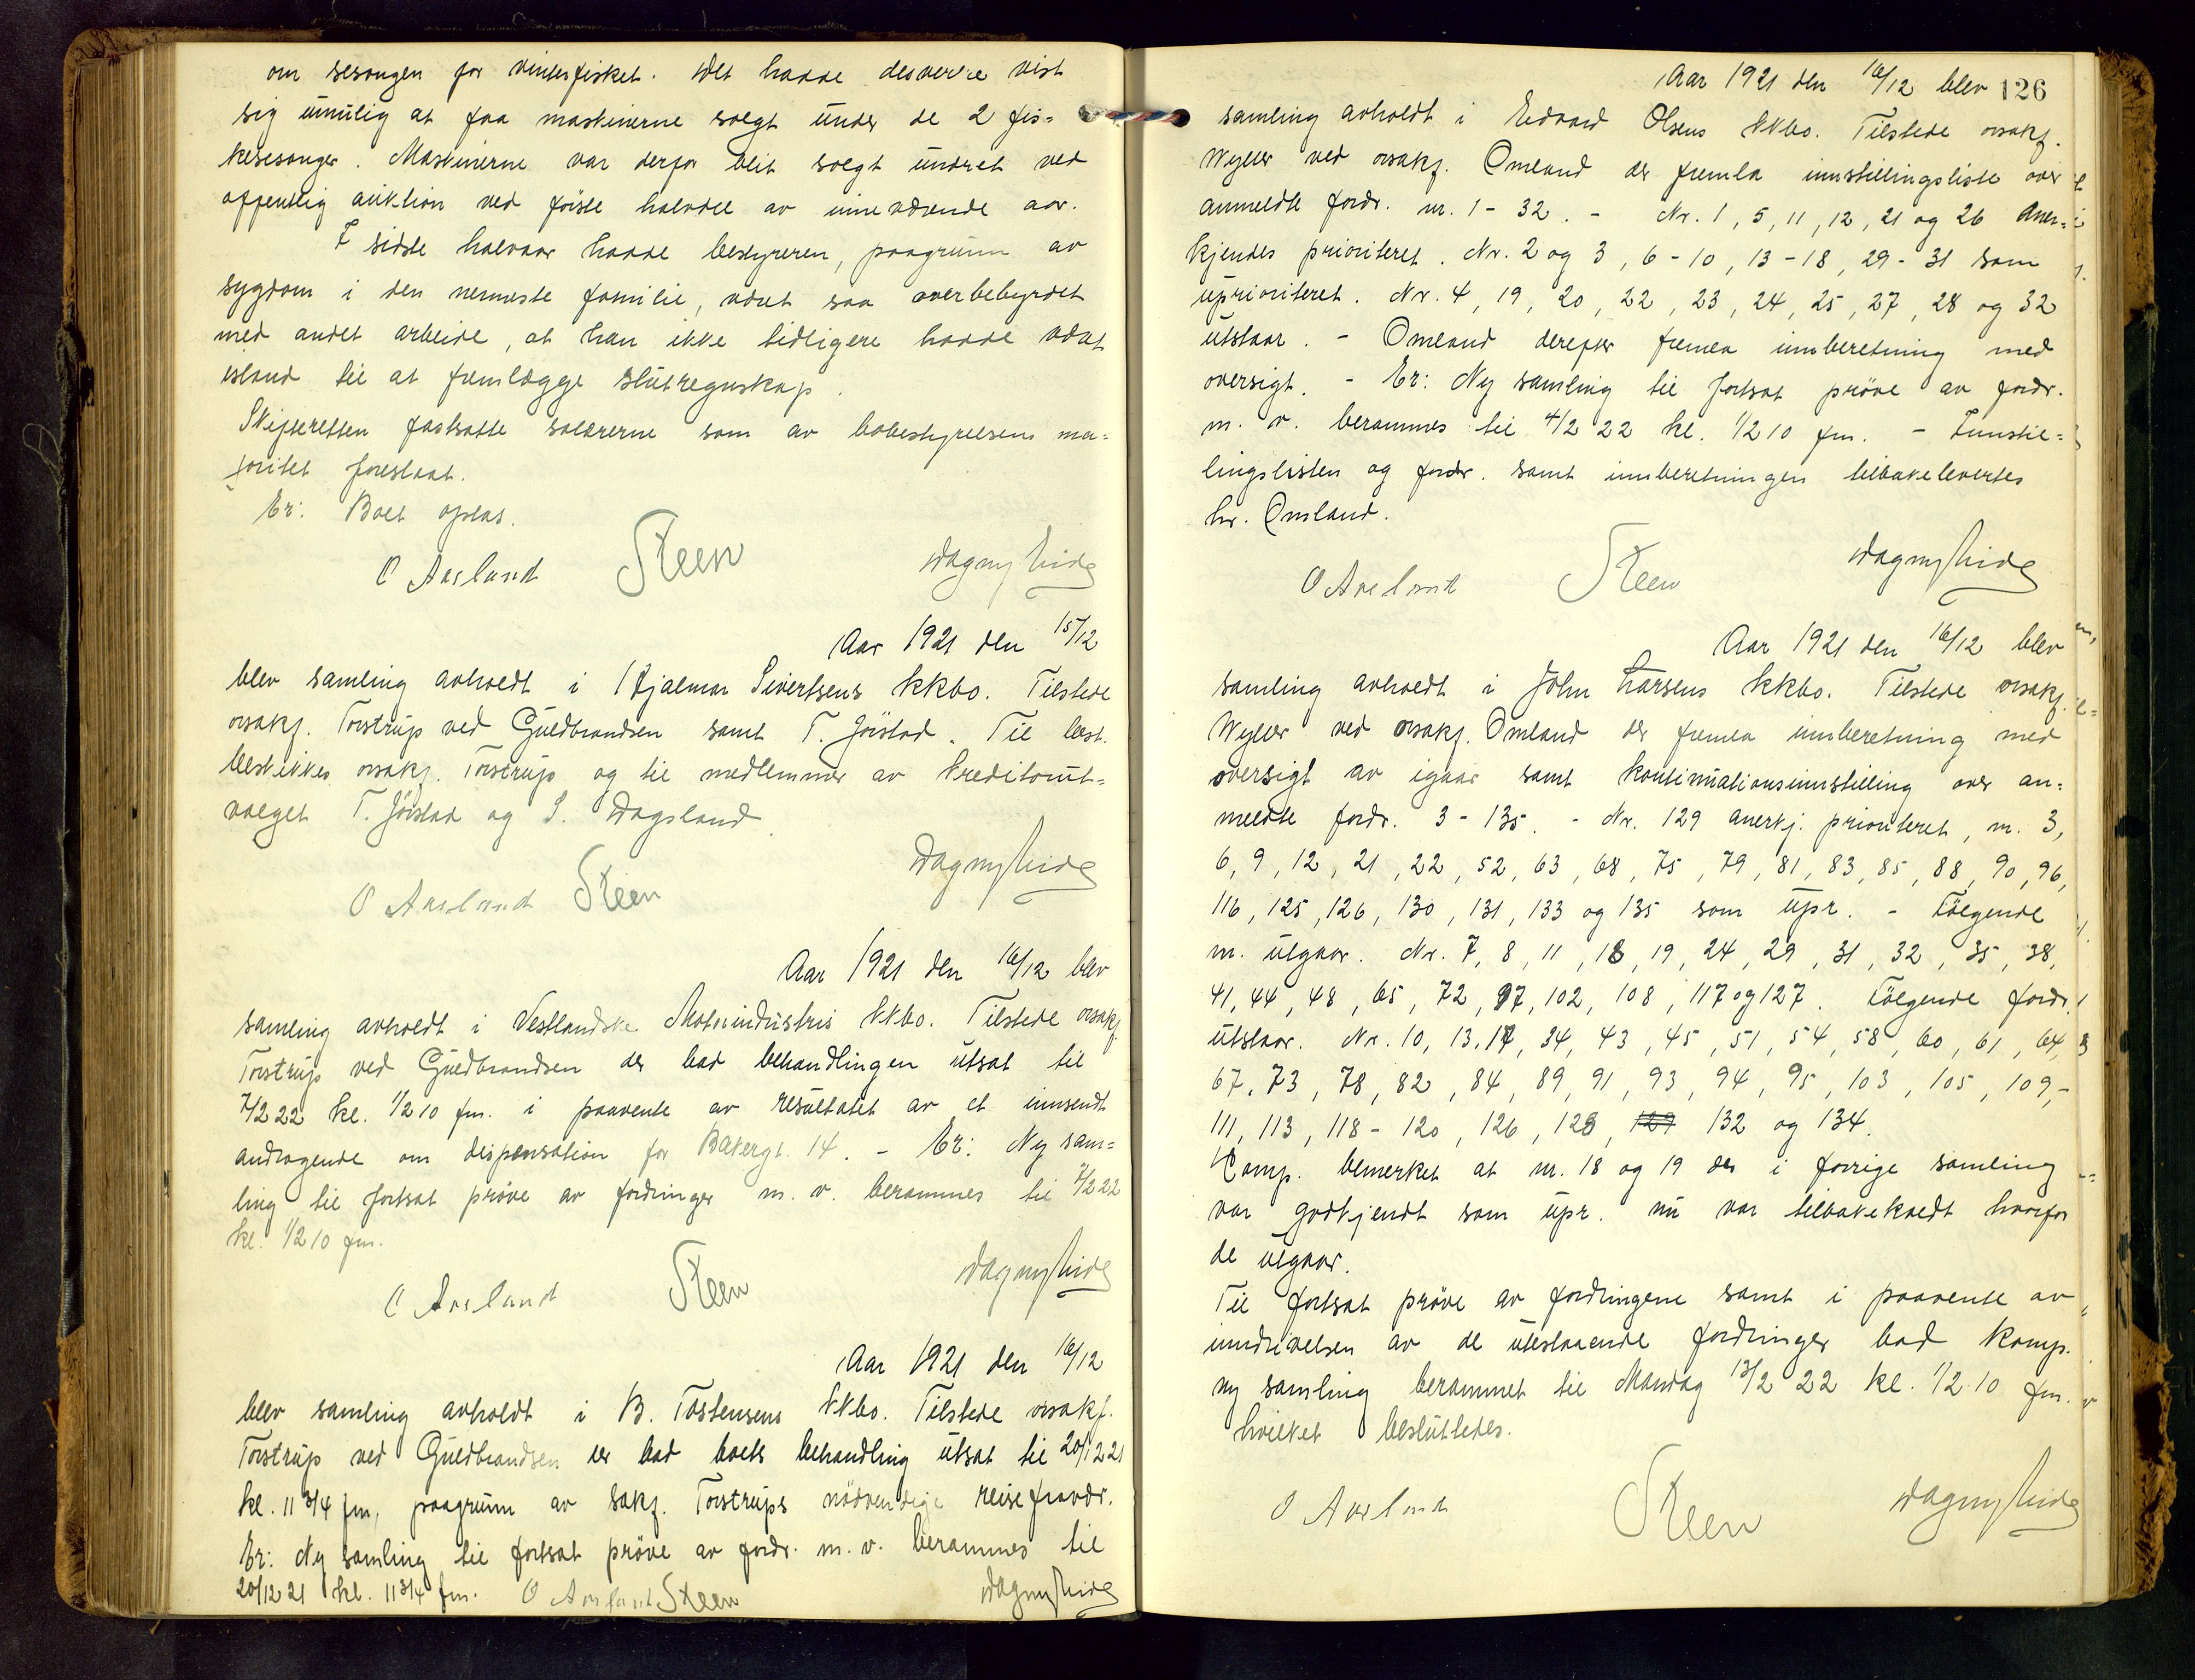 om sesongen for vinterfisket. Det hadde desverre vist
sig umulig at faa maskinerne solgt under de 2 fis=
kesesonger. Maskinerne var derfor blit solgt undret ved
offentlig auktion ved første halvdel av inneværende aar.
I sidste halvaar hadde bestyreren, paagrunn av
sygdom i den nermeste familie, været saa overbebyrdet
med andet arbeide, at han ikke tidligere hadde været
istand til at fremlægge slutregnskap.
Skifteretten fastsatte salærerne som av bobestyrelsens ma=
joritet foreslaat.
Er: Boet optas.
O Aasland Steen Dagny Eide
Aar 1921 den 15/12
blev samling avholdt i Hjalmar Sivertsens kkbo. Tilstede
orsakf. Torstrup ved Guldbrandsen samt T. Jörstad. Til best.
beskikkes orsakf. Torstrup og til medlemmer av kreditorut=
valget T. Jörstad og S. Dagsland.
O Aasland Steen Dagny Eide
Aar 1921 den 16/12 blev
samling avholdt i Vestlandske Motorindustris kkbo. Tilstede orsakf.
Torstrup ved Guldbrandsen der bad behandlingen utsat til
7/2 22 kl. 1/2 10 fm. i paavente av resultatet av et innsendt
andragende om dispensation for Bakergt. 14. - Er: Ny sam=
ling til fortsat prøve av fordringer m. v. berammes til 7/2 22
kl. 1/2 10 fm.
O Aasland Steen Dagny Eide
Aar 1921 den 16/12
blev samling avholdt i B. Tostensens kkbo. Tilstede orsakf.
Torstrup ved Guldbrandsen der bad boets behandling utsat til 20/12 21
kl. 11 3/4 fm, paagrunn av sakf. Torstrups nödvendige reisefravær.
Er: Ny samling til fortsat prøve av fordr. m. v. berammes til
20/12 21 kl. 11 3/4 fm. O Aasland Steen Dagny Eide
126
Aar 1921 den 16/12 blev
samling avholdt i Edvard Olsens kkbo. Tilstede orsakf.
Wyller ved orsakf. Omland der fremla innstillingsliste over
anmeldte fordr. nr. 1 - 32. - Nr. 1, 5, 11, 12, 21 og 26 aner=
kjendes prioriteret. Nr. 2 og 3, 6 - 10, 13 - 18, 29 - 31 som
uprioriteret. Nr. 4, 19, 20, 22, 23, 24, 25, 27, 28 og 32
utstaar. - Omland derefter fremla innberetning med
oversigt. - Er: Ny samling til fortsat prøve av fordr.
m. v. berammes til 4/2 22 kl. 1/2 10 fm. - Innstil=
lingslisten og fordr. samt innberetningen tilbakelevertes
hr. Omland.
O Aasland Steen Dagny Eide
Aar 1921 den 16/12 blev
samling avholdt i John Larsens kkbo. Tilstede orsakf.
Wyller ved orsakf. Omland der fremla innberetning med
oversigt av igaar samt kontinuationsinnstilling over an=
meldte fordr. 3 - 135. - Nr. 129 anerkj. prioriteret, nr. 3,
6, 9, 12, 21, 22, 52, 63, 68, 75, 79, 81, 83, 85, 88, 90, 96,
116, 125, 126, 130, 131, 133 og 135 som upr. - Følgende
nr. utgaar. Nr. 7, 8, 11, 18, 19, 24, 29, 31, 32, 35, 38,
41, 44, 48, 65, 72, 97, 102, 108, 117 og 127. Følgende fordr.
utstaar. Nr. 10, 13, 17, 34, 43, 45, 51, 54, 58, 60, 61, 64,
67, 73, 78, 82, 84, 89, 91, 93, 94, 95, 103, 105, 109,-
111, 113, 118 - 120, 126, 128, 129 132 og 134.
Komp. bemerket at nr. 18 og 19 der i forrige samling
var godkjendt som upr. nu var tilbakekaldt hvorfor
de utgaar.
Til fortsat prøve av fordringene samt i paavente av
inndrivelsen av de utestaaende fordringer bad Komp.
ny samling berammet til Mandag 13/2 22 kl. 1/2 10 fm.
hvilket besluttedes.
O Aasland Steen Dagny Eide